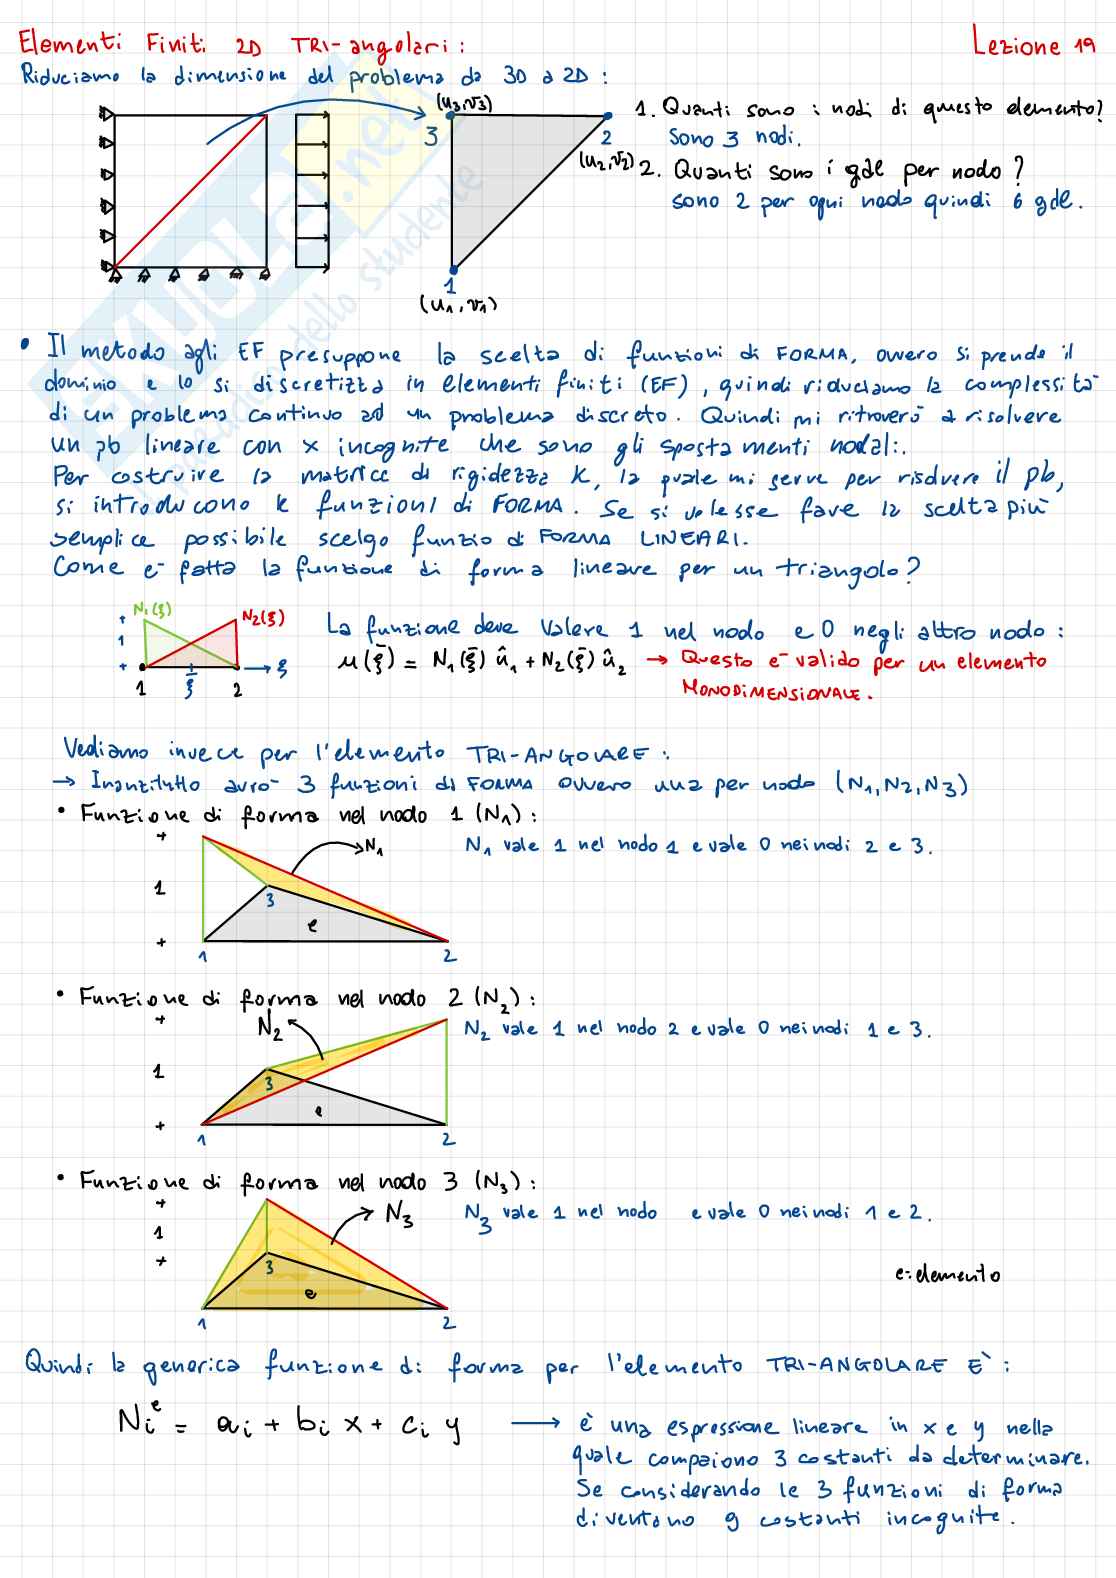 Elementi Finiti 2D TRI-angolari:
Lezione 19
Riduciamo la dimensione del problema da 3D a 2D:
(u3,v3)
3
2
(u2,v2)
1
(u1,v1)
1. Quanti sono i nodi di questo elemento?
Sono 3 nodi.
2. Quanti sono i gdl per nodo?
sono 2 per ogni nodo quindi 6 gdl.
• Il metodo agli EF presuppone la scelta di funzioni di FORMA, ovvero si prende il
dominio e lo si discretizza in elementi finiti (EF), quindi riduciamo la complessità
di un problema continuo ad un problema discreto. Quindi mi ritroverò a risolvere
un pb lineare con x incognite che sono gli spostamenti nodali.
Per costruire la matrice di rigidezza K, la quale mi serve per risolvere il pb,
si introducono le funzioni di FORMA. Se si volesse fare la scelta più
semplice possibile scelgo funzio di FORMA LINEARI.
Come è fatta la funzione di forma lineare per un triangolo?
N1(ξ)
N2(ξ)
1
ξ
1
ξ̄
2
La funzione deve valere 1 nel nodo e 0 negli altro nodo:
u(ξ̄) = N1(ξ̄) û1 + N2(ξ̄) û2 → Questo è valido per un elemento
MONODIMENSIONALE.
Vediamo invece per l'elemento TRI-ANGOLARE:
→ Inanzitutto avrò 3 funzioni di FORMA ovvero una per nodo (N1,N2,N3)
• Funzione di forma nel nodo 1 (N1):
N1 vale 1 nel nodo 1 e vale 0 nei nodi 2 e 3.
N1
1
3
e
1
2
• Funzione di forma nel nodo 2 (N2):
N2 vale 1 nel nodo 2 e vale 0 nei nodi 1 e 3.
N2
1
3
e
1
2
• Funzione di forma nel nodo 3 (N3):
N3 vale 1 nel nodo e vale 0 nei nodi 1 e 2.
N3
1
3
e
1
2
e: elemento
Quindi la generica funzione di forma per l'elemento TRI-ANGOLARE È:
Ni^e = ai + bi x + ci y → è una espressione lineare in x e y nella
quale compaiono 3 costanti da determinare.
Se considerando le 3 funzioni di forma
diventano 9 costanti incognite.